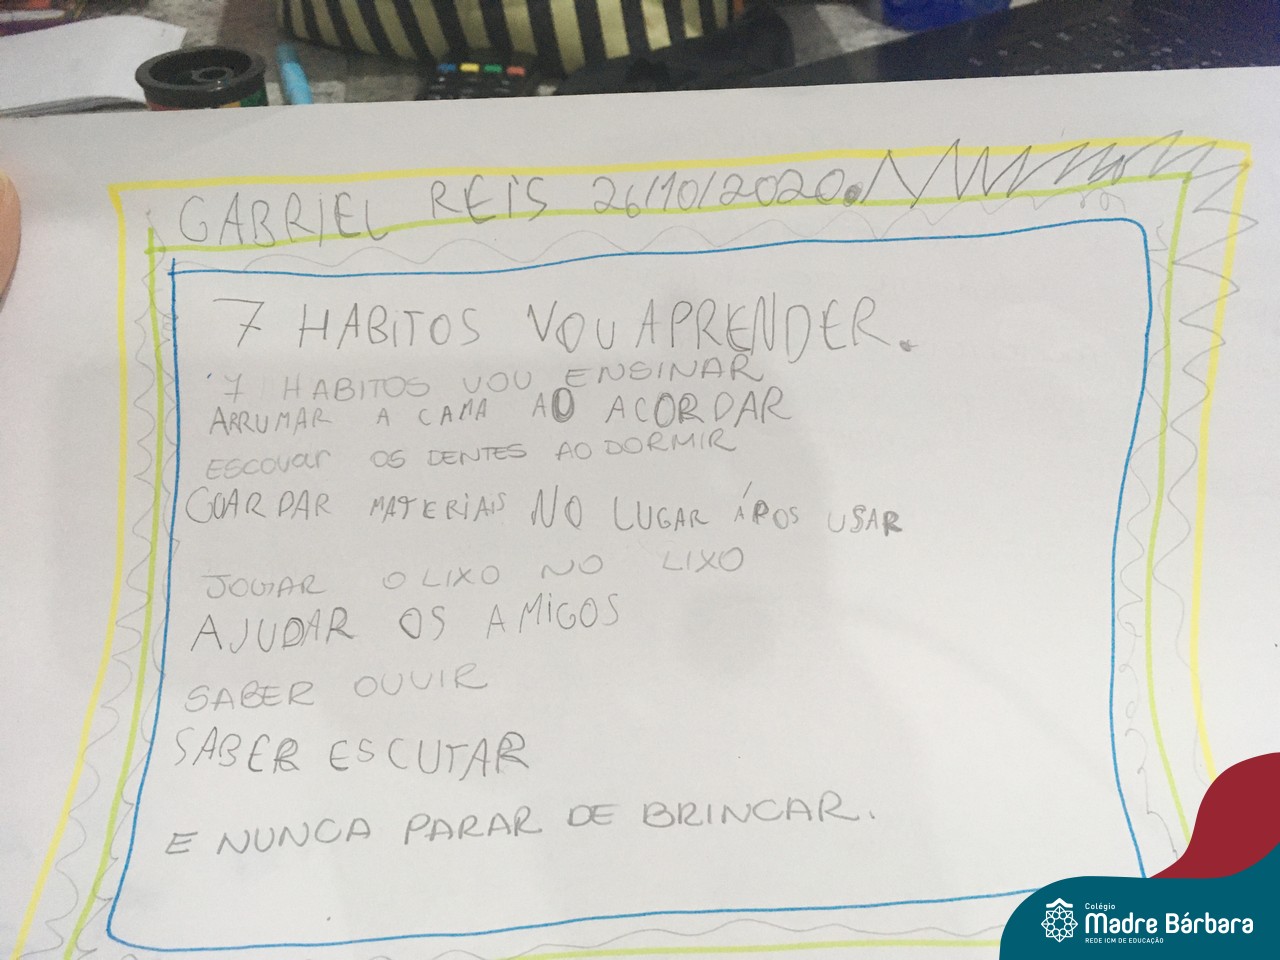 GABRIEL REIS 26/10/2020.
7 HABITOS VOU APRENDER.
7 HABITOS VOU ENSINAR
ARRUMAR A CAMA AO ACORDAR
ESCOVAR OS DENTES AO DORMIR
GUARDAR MATERIAIS NO LUGAR ÁPOS USAR
JOGAR O LIXO NO LIXO
AJUDAR OS AMIGOS
SABER OUVIR
SABER ESCUTAR
E NUNCA PARAR DE BRINCAR.
Colégio
Madre Bárbara
REDE ICM DE EDUCAÇÃO